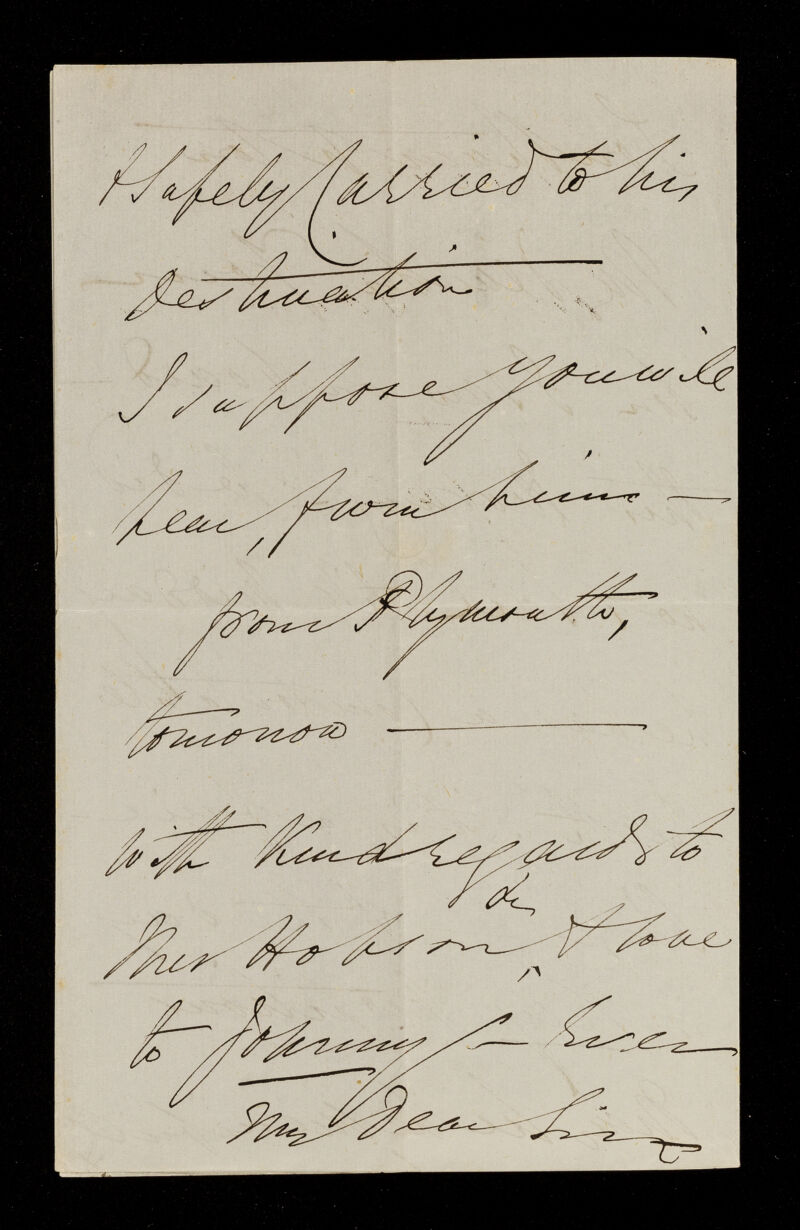 & Safely Carried to his
destination
I suppose you will
hear, from him —
from Plymouth,
tomorrow ———
With Kind regards to
Mrs Hobson, & love
to Johnny — Ever
My Dear Sir